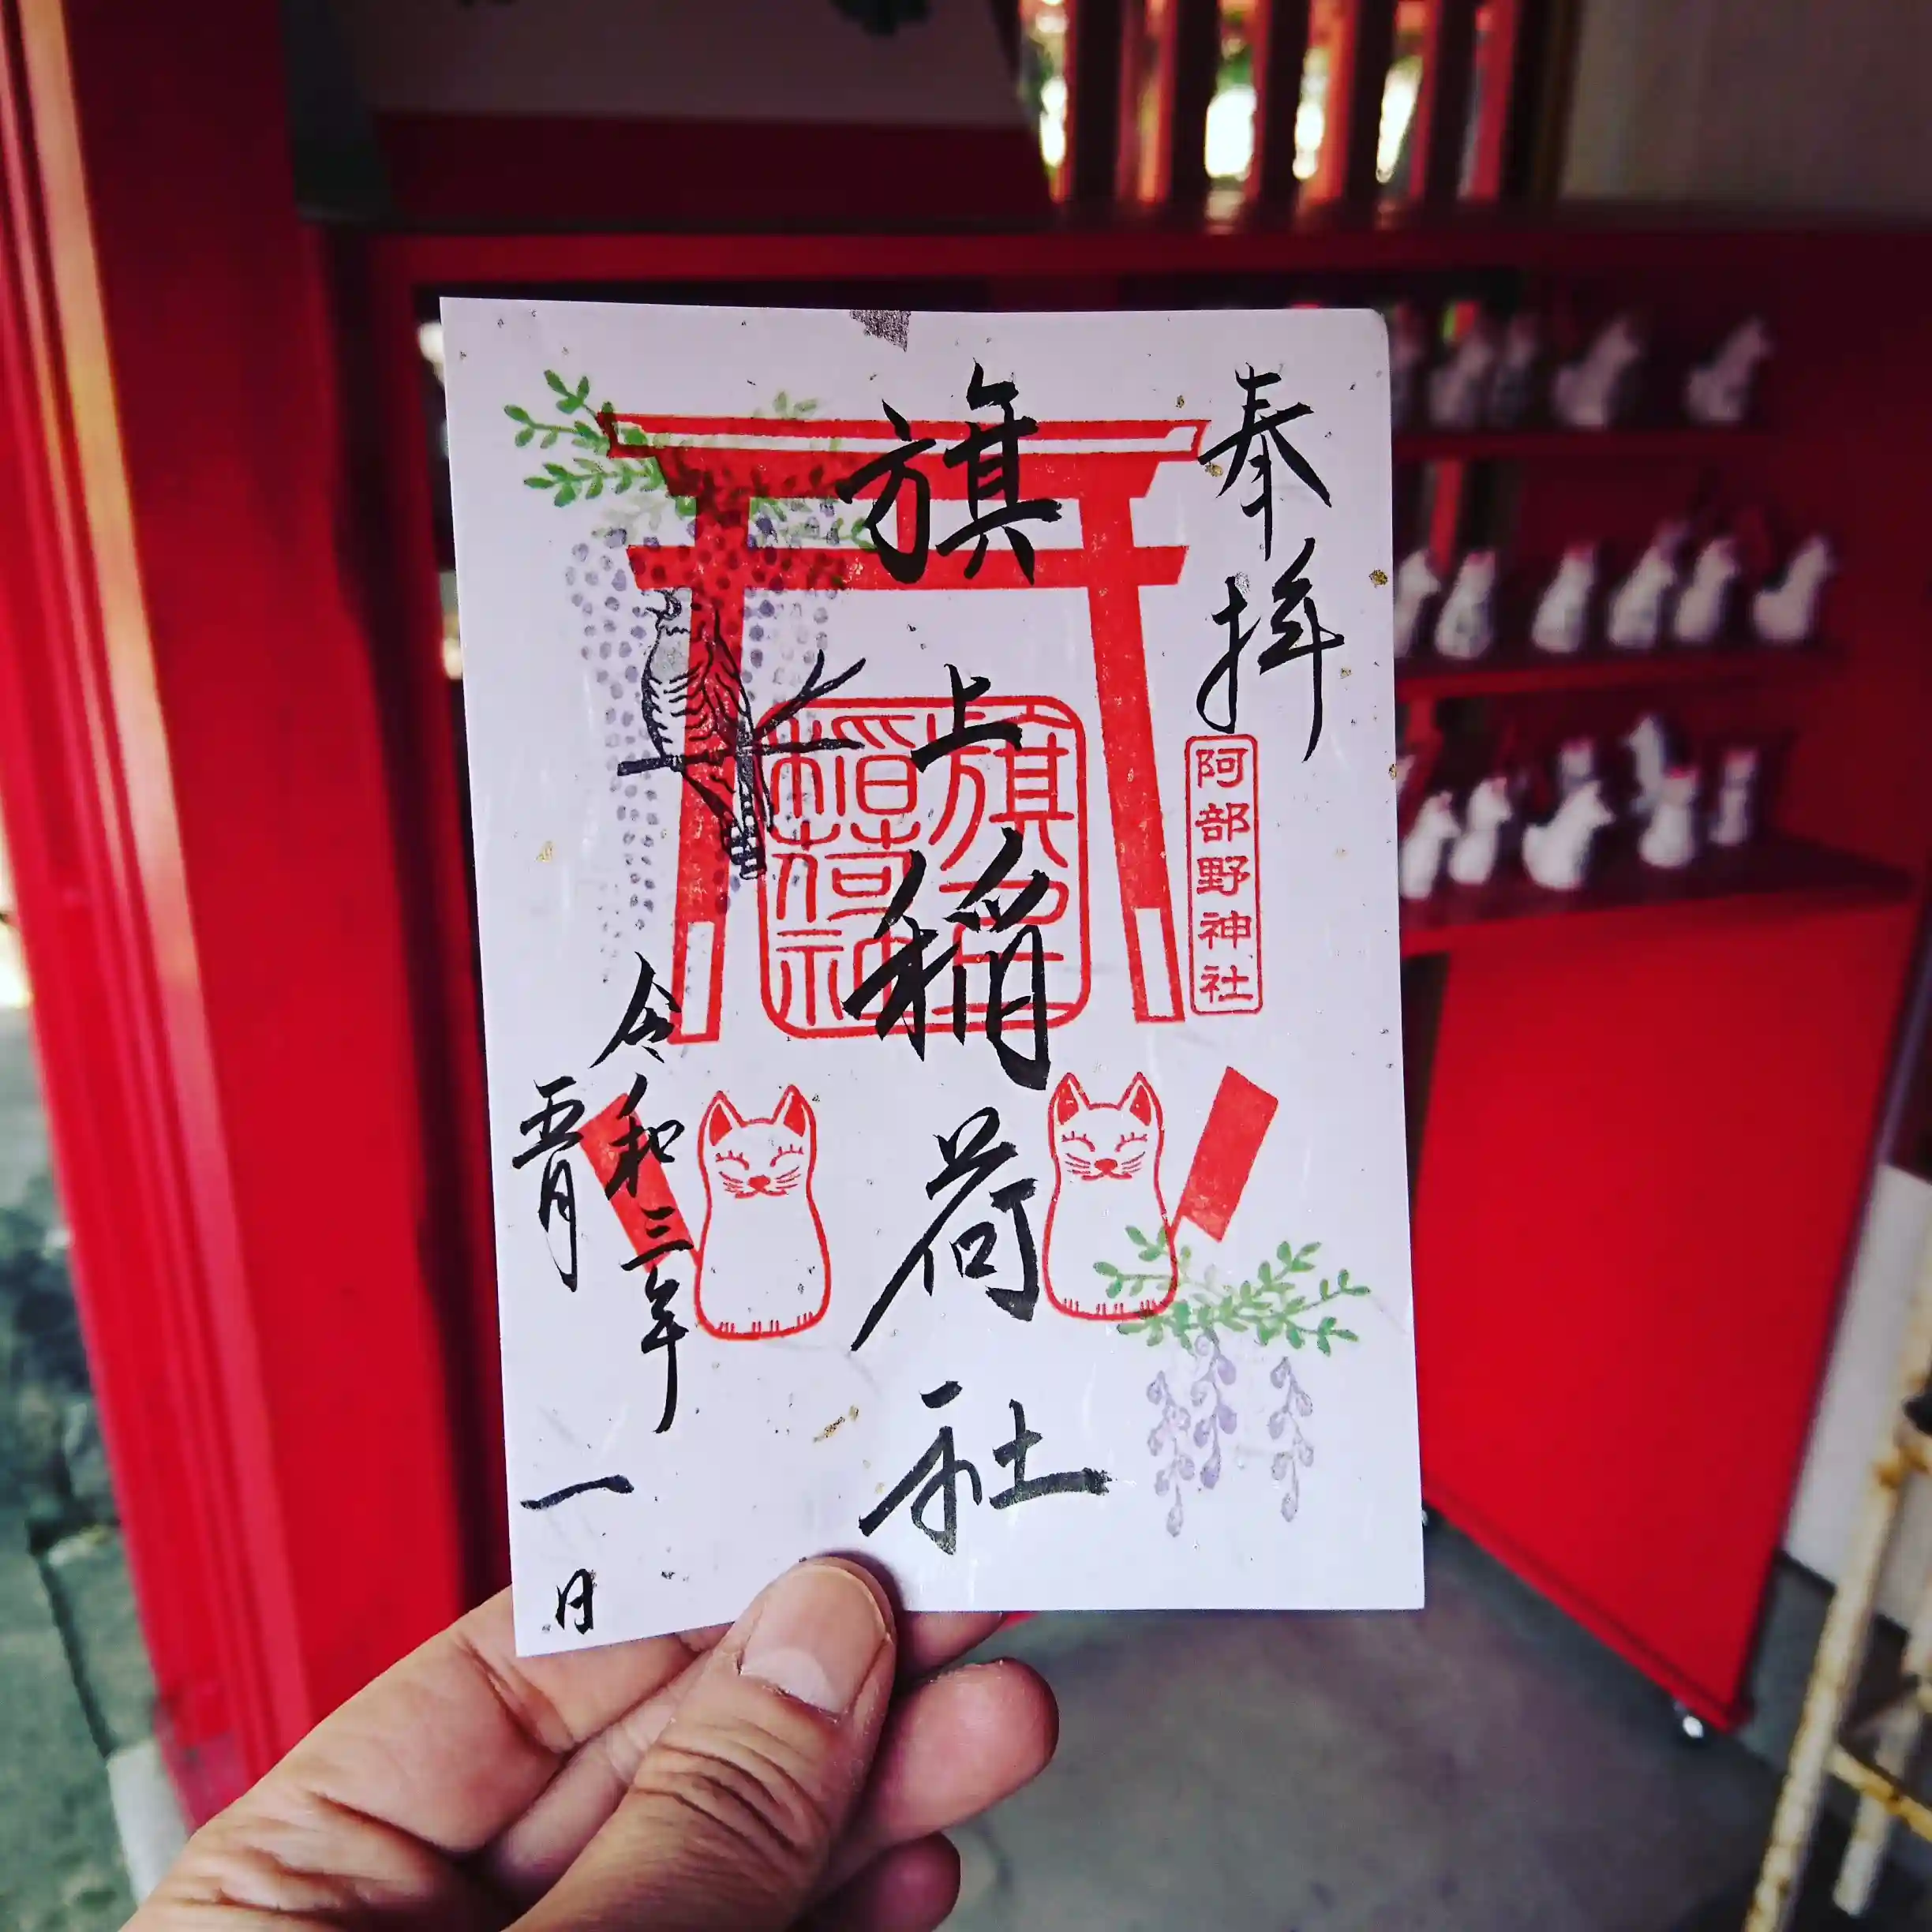 奉拝
阿部野神社
旗上稲荷社
旗上稲荷社
令和三年
五月一日